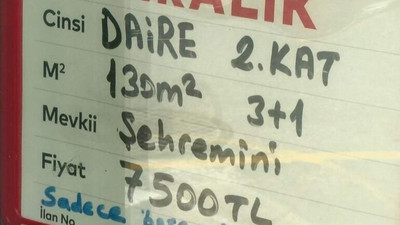 RALIK
Cinsi DAİRE 2.KAT
M² 130m² 3+1
Mevkii Şehremini
Fiyat 7500TL
Sadece
İlan No